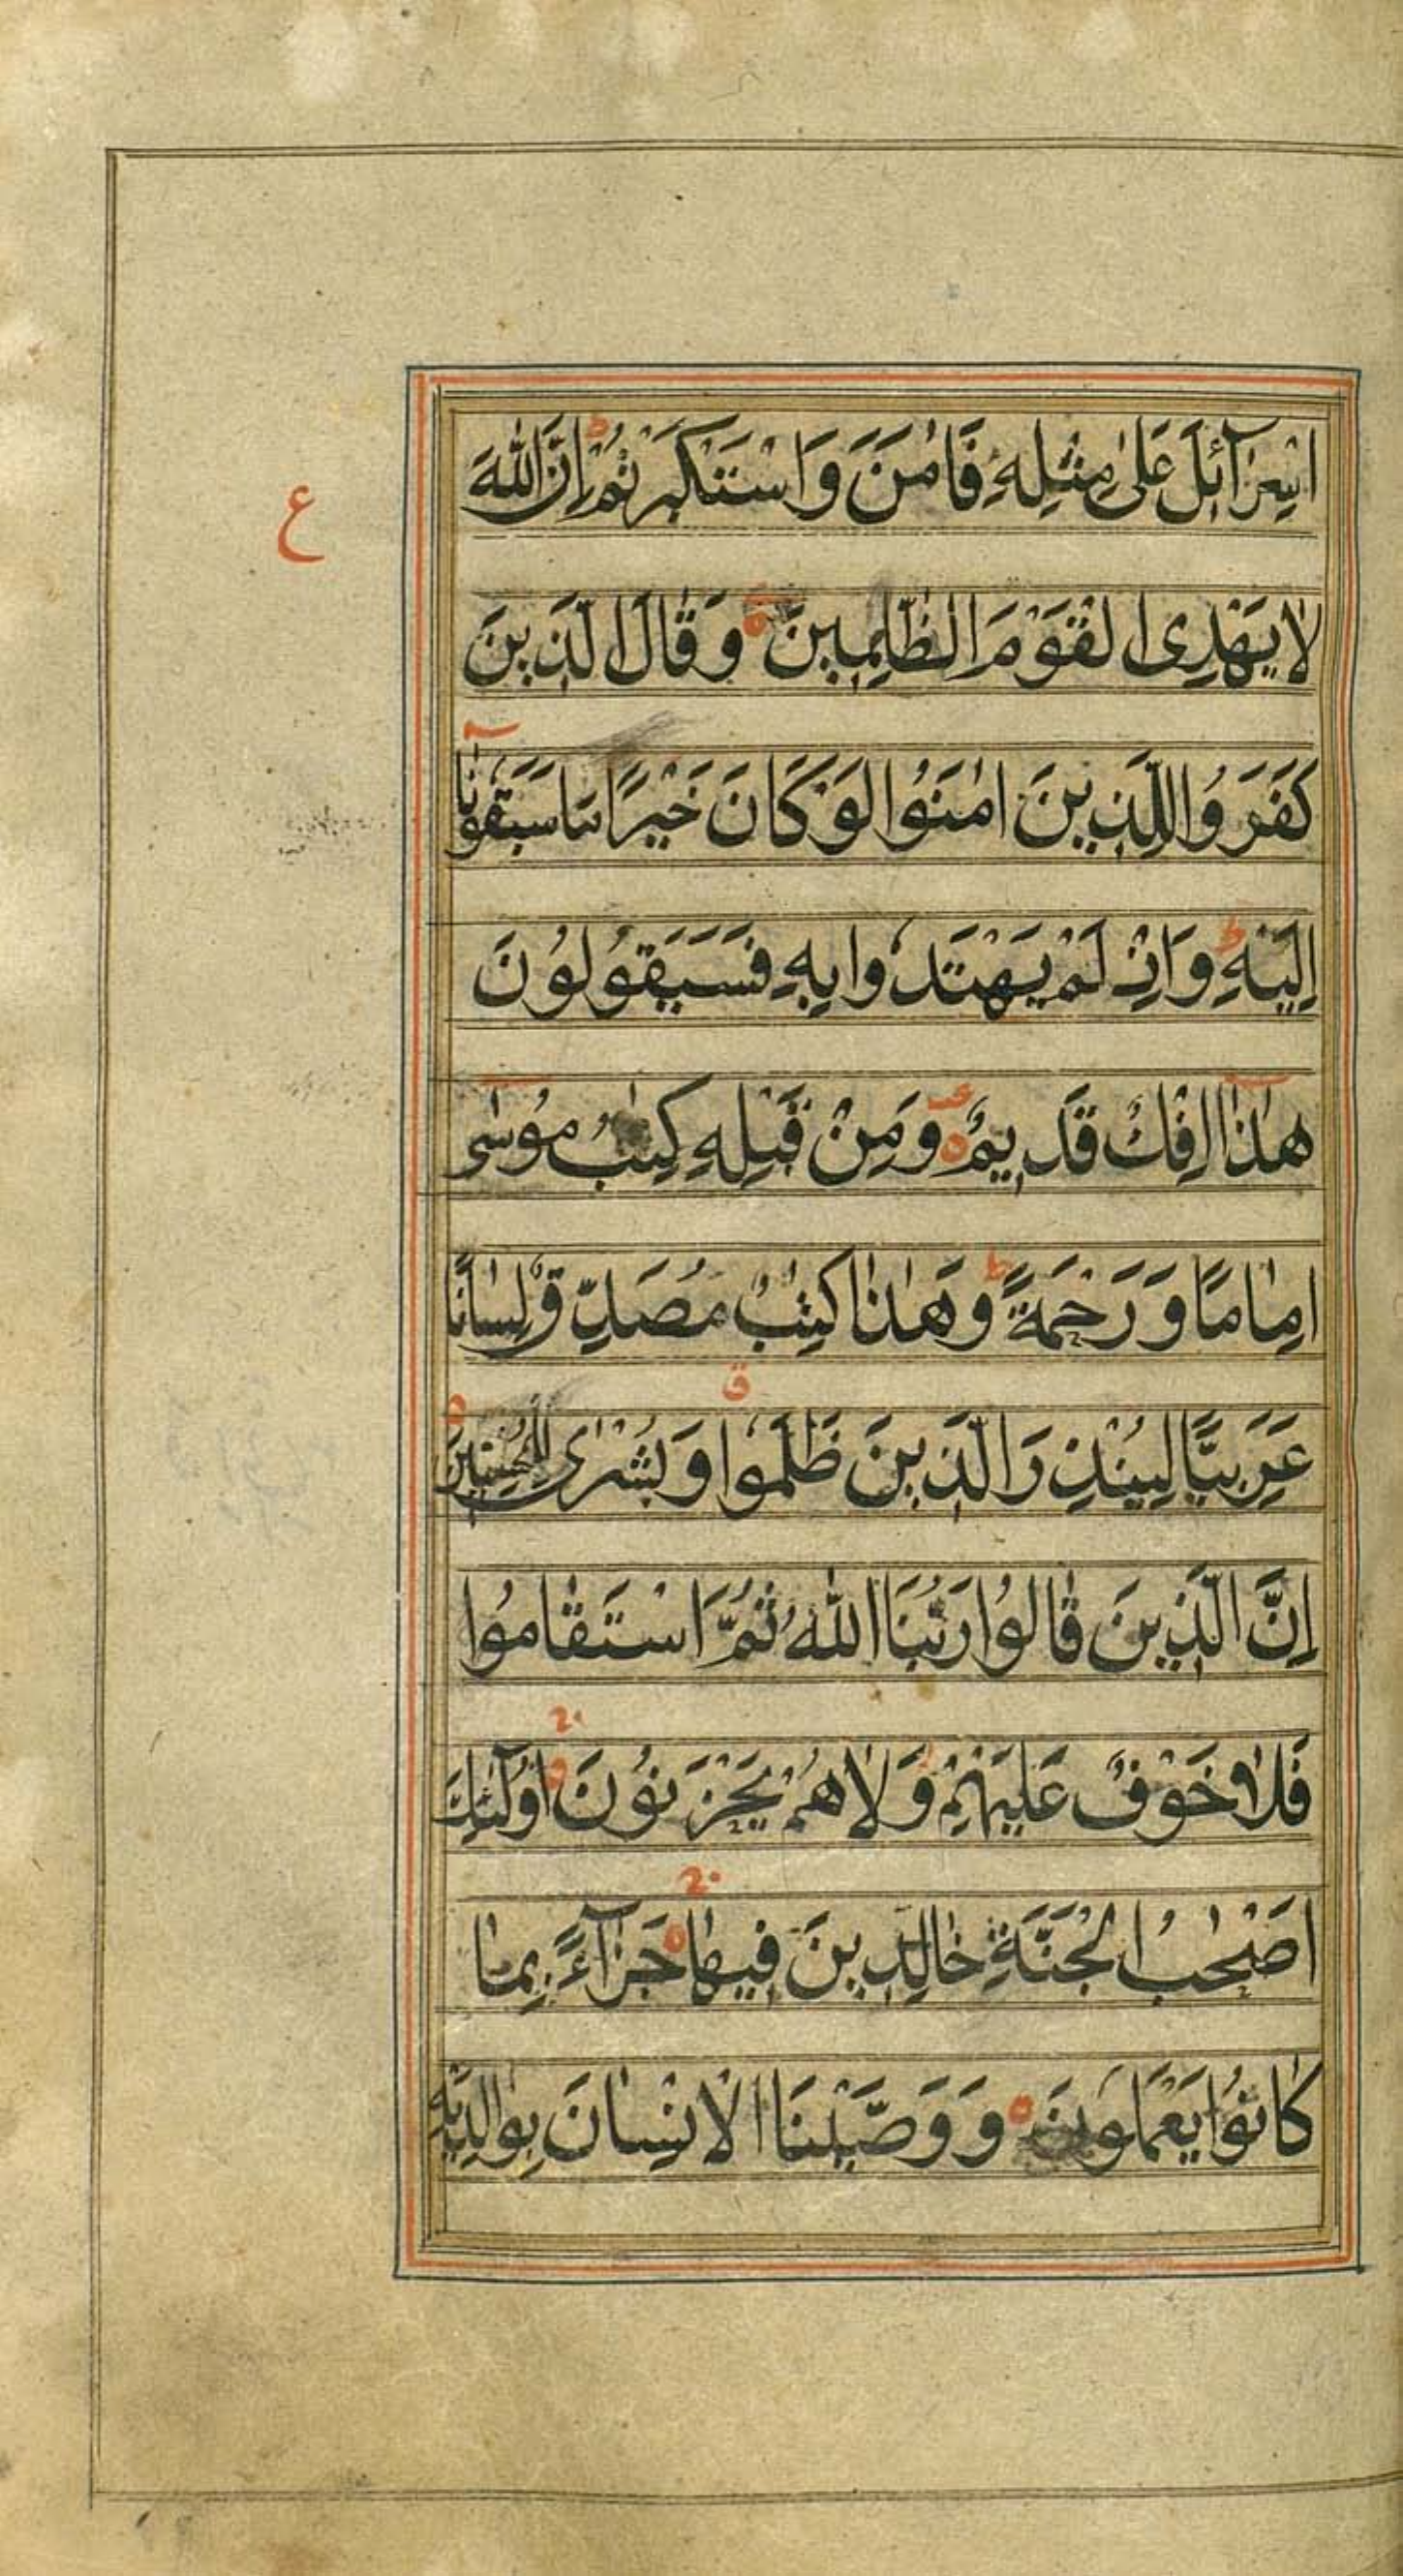 اِسْرَآئِلَ عَلٰى مِثْلِهٖ فَاٰمَنَ وَاسْتَكْبَرْتُمْ ط اِنَّ اللّٰهَ
ع
لَا يَهْدِى الْقَوْمَ الظّٰلِمِيْنَ ه وَقَالَ الَّذِيْنَ
كَفَرُوا لِلَّذِيْنَ اٰمَنُوْا لَوْ كَانَ خَيْرًا مَّا سَبَقُوْنَا
اِلَيْهِ ط وَاِذْ لَمْ يَهْتَدُوْا بِهٖ فَسَيَقُوْلُوْنَ
هٰذَا اِفْكٌ قَدِيْمٌ ه وَمِنْ قَبْلِهٖ كِتٰبُ مُوْسٰى
اِمَامًا وَرَحْمَةً ط وَهٰذَا كِتٰبٌ مُصَدِّقٌ لِسَانًا
عَرَبِيًّا لِيُنْذِرَ الَّذِيْنَ ظَلَمُوْا ق وَبُشْرٰى لِلْمُحْسِنِيْنَ ه
اِنَّ الَّذِيْنَ قَالُوْا رَبُّنَا اللّٰهُ ثُمَّ اسْتَقَامُوْا
فَلَا خَوْفٌ عَلَيْهِمْ وَلَا هُمْ يَحْزَنُوْنَ ه اُولٰٓئِكَ
اَصْحٰبُ الْجَنَّةِ خَالِدِيْنَ فِيْهَا ه جَزَآءً بِمَا
كَانُوْا يَعْمَلُوْنَ ه وَوَصَّيْنَا الْاِنْسَانَ بِوَالِدَيْهِ